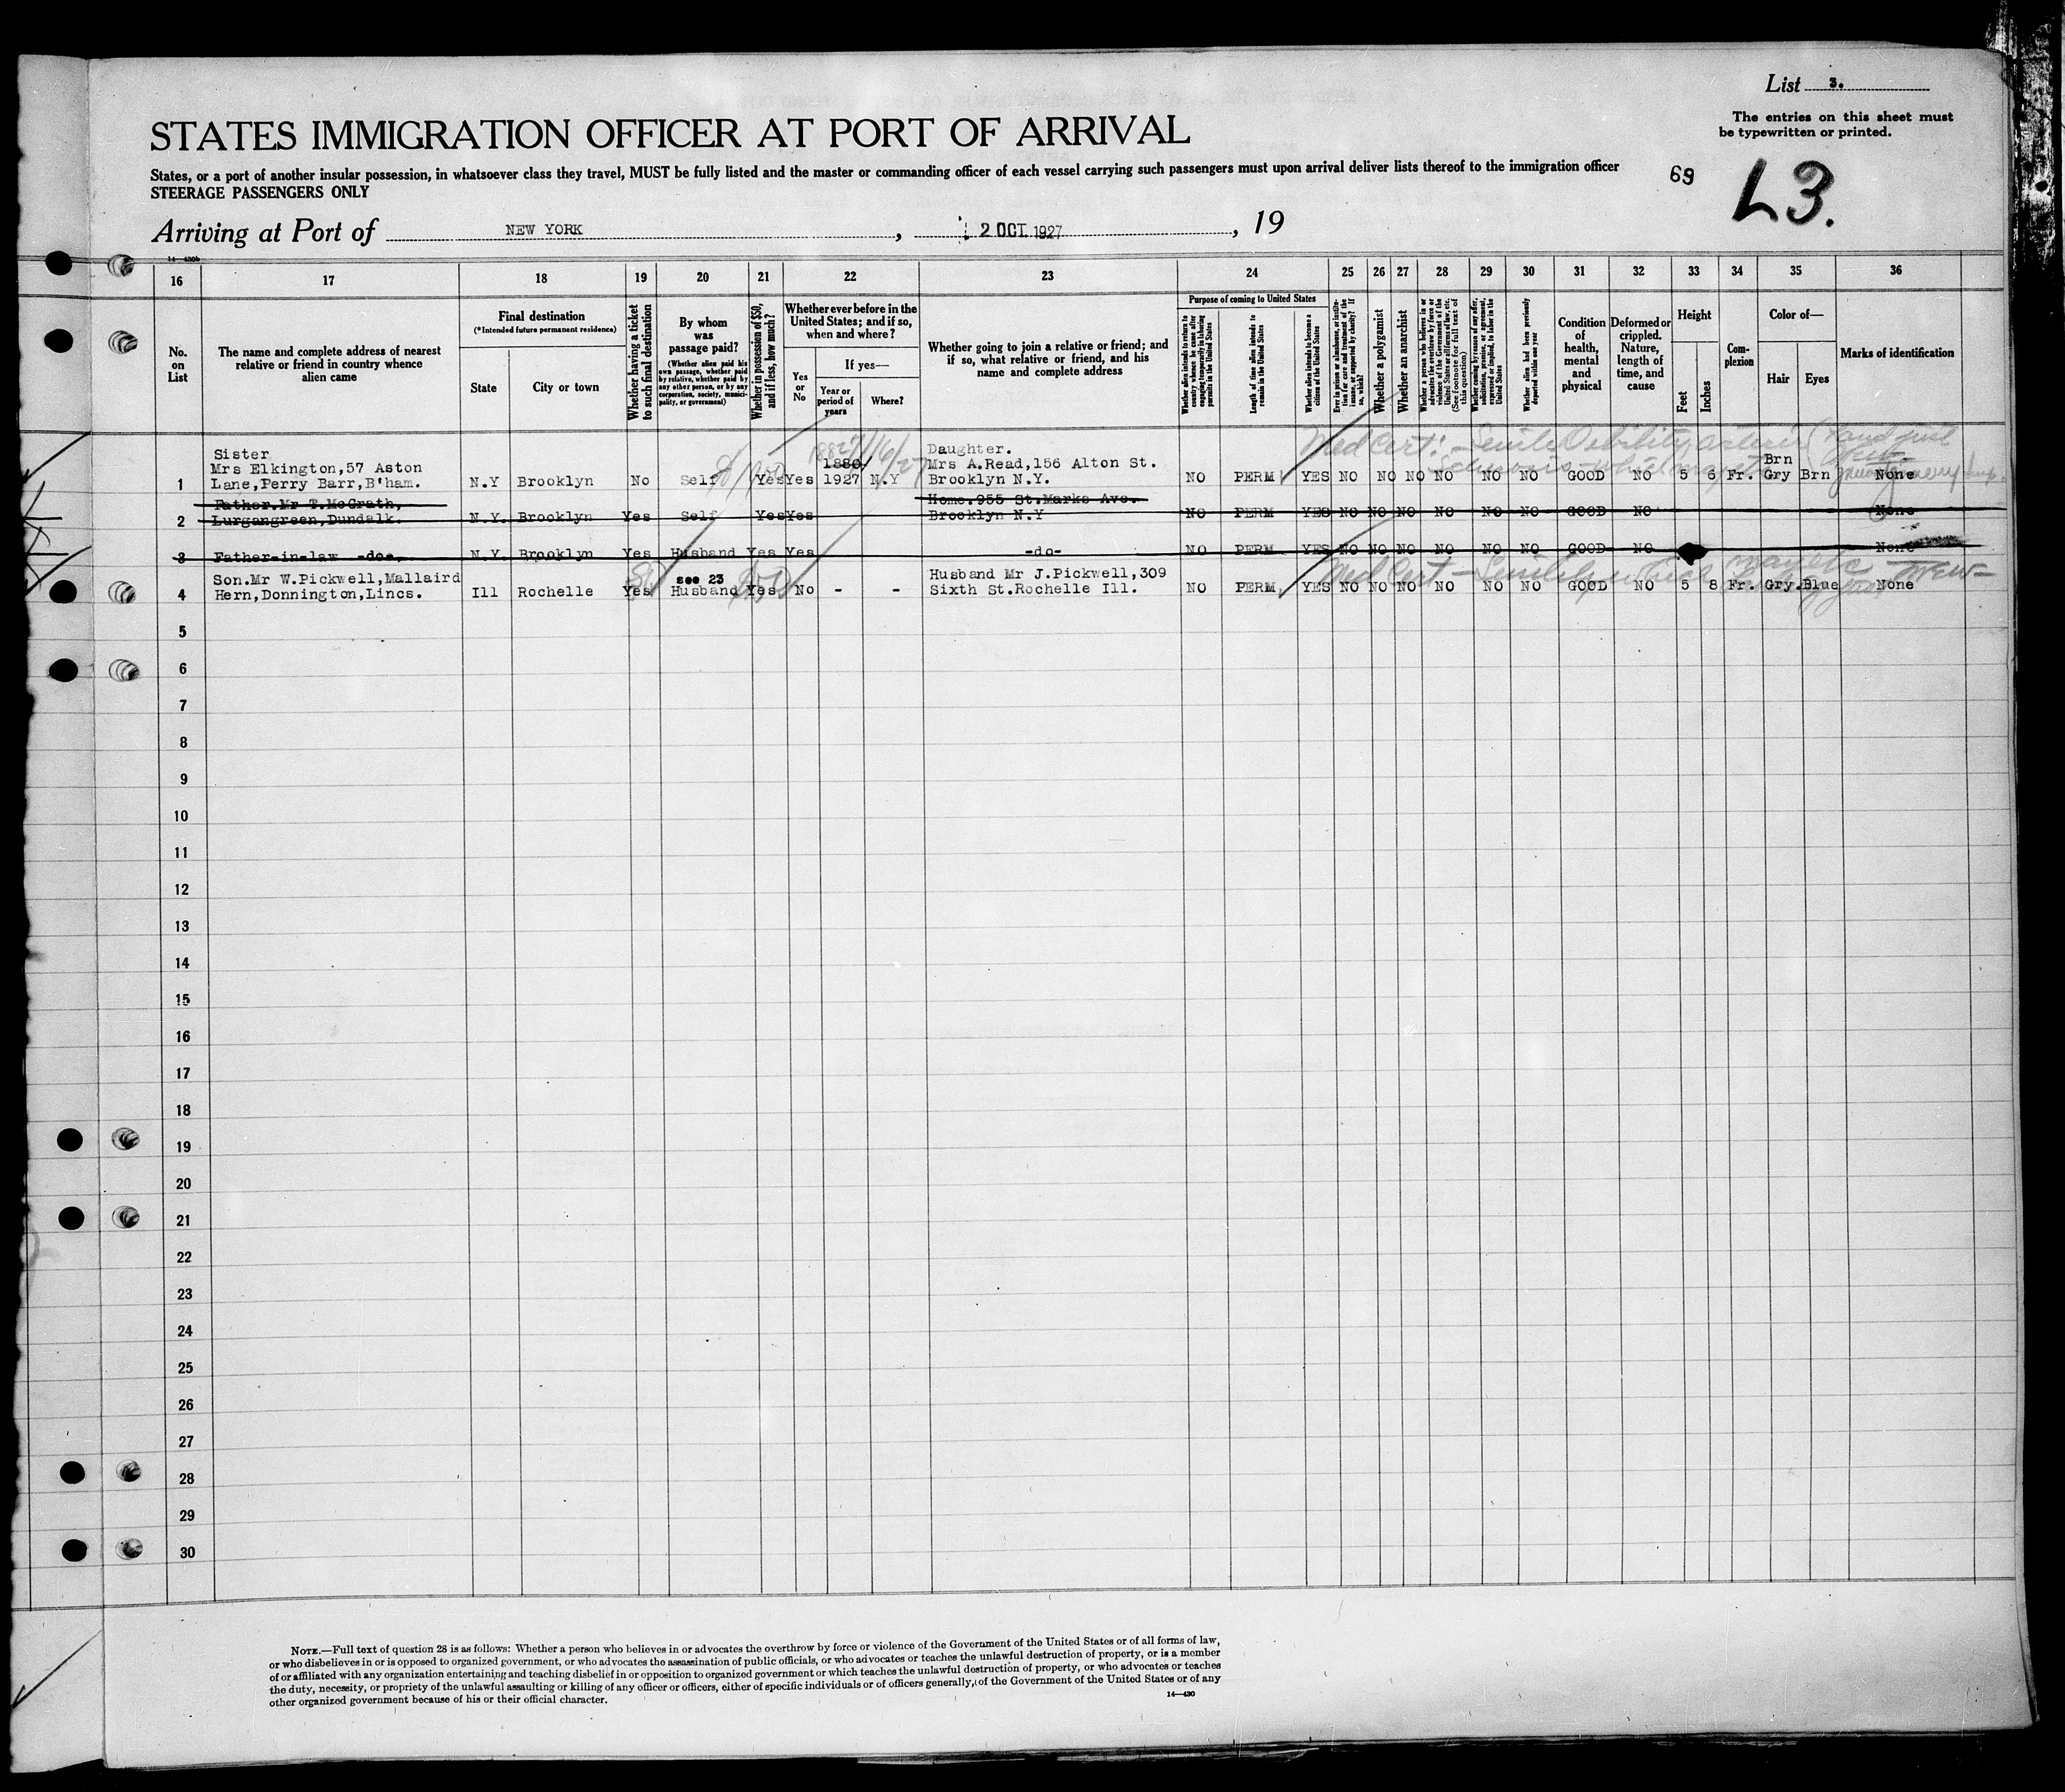 List 3.
The entries on this sheet must
be typewritten or printed.
STATES IMMIGRATION OFFICER AT PORT OF ARRIVAL
States, or a port of another insular possession, in whatsoever class they travel, MUST be fully listed and the master or commanding officer of each vessel carrying such passengers must upon arrival deliver lists thereof to the immigration officer
STEERAGE PASSENGERS ONLY
69
L3.
Arriving at Port of NEW YORK, 2 OCT 1927, 19
14—430b
16 17 18 19 20 21 22 23 24 25 26 27 28 29 30 31 32 33 34 35 36
No. on List
The name and complete address of nearest
relative or friend in country whence
alien came
Final destination
(*Intended future permanent residence)
State
City or town
Whether having a ticket
to such final destination
By whom
was
passage paid?
(Whether alien paid his
own passage, whether paid
by relative, whether paid by
any other person, or by any
corporation, society, munici-
pality, or government)
Whether in possession of $50,
and if less, how much?
Whether ever before in the
United States; and if so,
when and where?
Yes
or
No
If yes—
Year or
period of
years
Where?
Whether going to join a relative or friend; and
if so, what relative or friend, and his
name and complete address
Purpose of coming to United States
Whether alien intends to return to
country whence he came after
engaging temporarily in laboring
pursuits in the United States
Length of time alien intends to
remain in the United States
Whether alien intends to become a
citizen of the United States
Ever in prison or almshouse, or institu-
tion for care and treatment of the
insane, or supported by charity? If
so, which?
Whether a polygamist
Whether an anarchist
Whether a person who believes in or
advocates the overthrow by force or
violence of the Government of the
United States or all forms of law, etc.
(See footnote for full text of
this question)
Whether coming by reason of any offer,
solicitation, promise, or agreement,
expressed or implied, to labor in the
United States
Whether alien had been previously
deported within one year
Condition
of
health,
mental
and
physical
Deformed or
crippled.
Nature,
length of
time, and
cause
Height
Feet
Inches
Com-
plexion
Color of—
Hair
Eyes
Marks of identification
Sister
Mrs Elkington,57 Aston
Lane,Perry Barr,B'ham.
1 N.Y Brooklyn No Self Yes Yes 1880/ 1927 N.Y
Daughter.
Mrs A.Read,156 Alton St.
Brooklyn N.Y.
NO PERM YES NO NO NO NO NO NO GOOD NO 5 6 Fr. Brn Gry Brn None
Med Cert: - Senile Debility, arterio
Father.Mr T.McGrath,
2 Lurgangreen,Dundalk. N.Y. Brooklyn Yes Self Yes Yes
Home.955 St.Marks Ave.
Brooklyn N.Y
NO PERM YES NO NO NO NO NO NO GOOD NO None
3 Father-in-law -do- N.Y. Brooklyn Yes Husband Yes Yes -do- NO PERM YES NO NO NO NO NO NO GOOD NO None
Son.Mr W.Pickwell,Mallaird
4 Hern,Donnington,Lincs. Ill Rochelle Yes see 23 Husband Yes No - -
Husband Mr J.Pickwell,309
Sixth St.Rochelle Ill.
NO PERM YES NO NO NO NO NO NO GOOD NO 5 8 Fr. Gry. Blue None
Med Cert -
5
6
7
8
9
10
11
12
13
14
15
16
17
18
19
20
21
22
23
24
25
26
27
28
29
30
NOTE.—Full text of question 28 is as follows: Whether a person who believes in or advocates the overthrow by force or violence of the Government of the United States or of all forms of law,
or who disbelieves in or is opposed to organized government, or who advocates the assassination of public officials, or who advocates or teaches the unlawful destruction of property, or is a member
of or affiliated with any organization entertaining and teaching disbelief in or opposition to organized government or which teaches the unlawful destruction of property, or who advocates or teaches
the duty, necessity, or propriety of the unlawful assaulting or killing of any officer or officers, either of specific individuals or of officers generally, of the Government of the United States or of any
other organized government because of his or their official character.
14—430